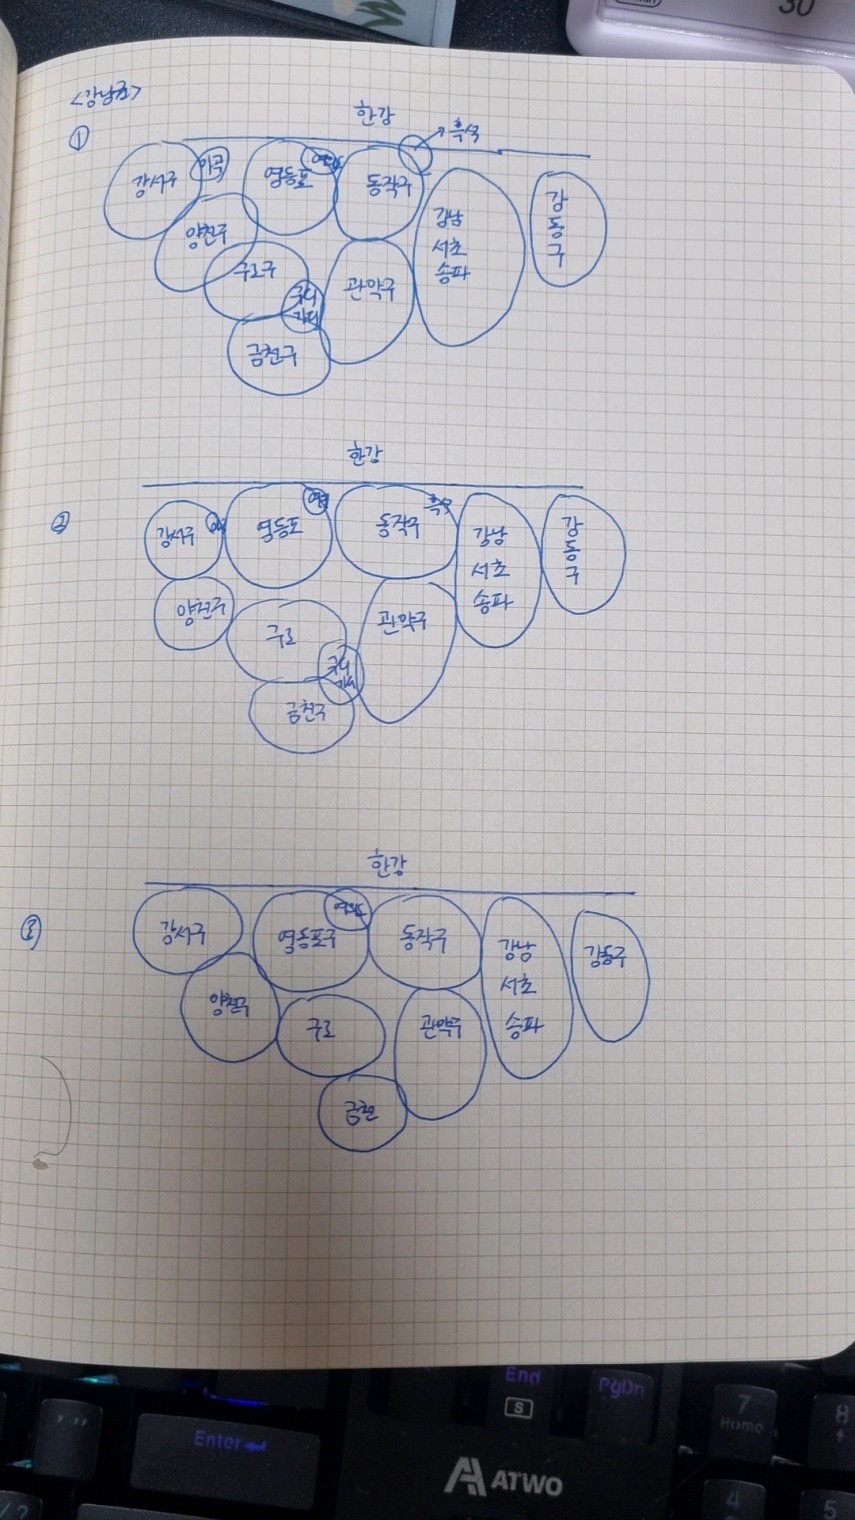 <강남권>
①
한강
흑석
강서구
마곡
영등포
여의도
동작구
강남
서초
송파
강
동
구
양천구
구로구
구디
가디
관악구
금천구
한강
②
강서구
영등포
동작구
흑석
강남
서초
송파
강
동
구
양천구
구로
구디
가디
관악구
금천구
한강
③
강서구
영등포구
여의도
동작구
강남
서초
송파
강동구
양천구
구로
관악구
금천
30
End
S
PgDn
7
Home
8
Enter
ATWO
4
5